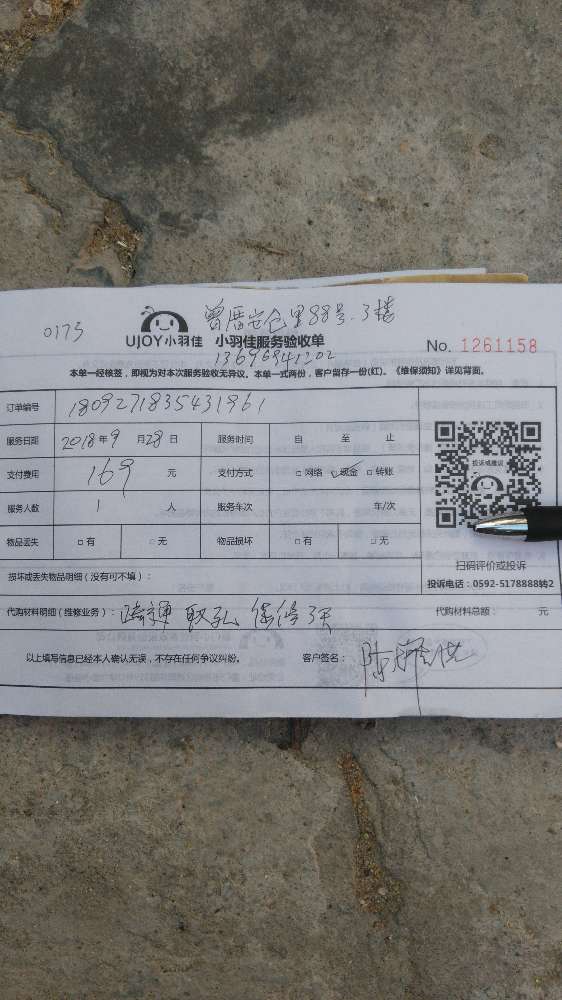 曾厝垵仓里88号.3楼
0175
UJOY小羽佳 小羽佳服务验收单
No. 1261158
13696941202
本单一经核签，即视为对本次服务验收无异议。本单一式两份，客户留存一份(红)。《维保须知》详见背面。
订单编号 1809271835431961
服务日期 2018年9月28日 服务时间 自 至 止
支付费用 169 元 支付方式 □网络 ☑现金 □转账
服务人数 1 人 服务车次 车/次
物品丢失 □有 □无 物品损坏 □有 □无
投诉或建议
扫码评价或投诉
投诉电话：0592-5178888转2
损坏或丢失物品明细（没有可不填）：
代购材料明细（维修业务）： 保修3天 代购材料总额： 元
以上填写信息已经本人确认无误，不存在任何争议纠纷。 客户签名：